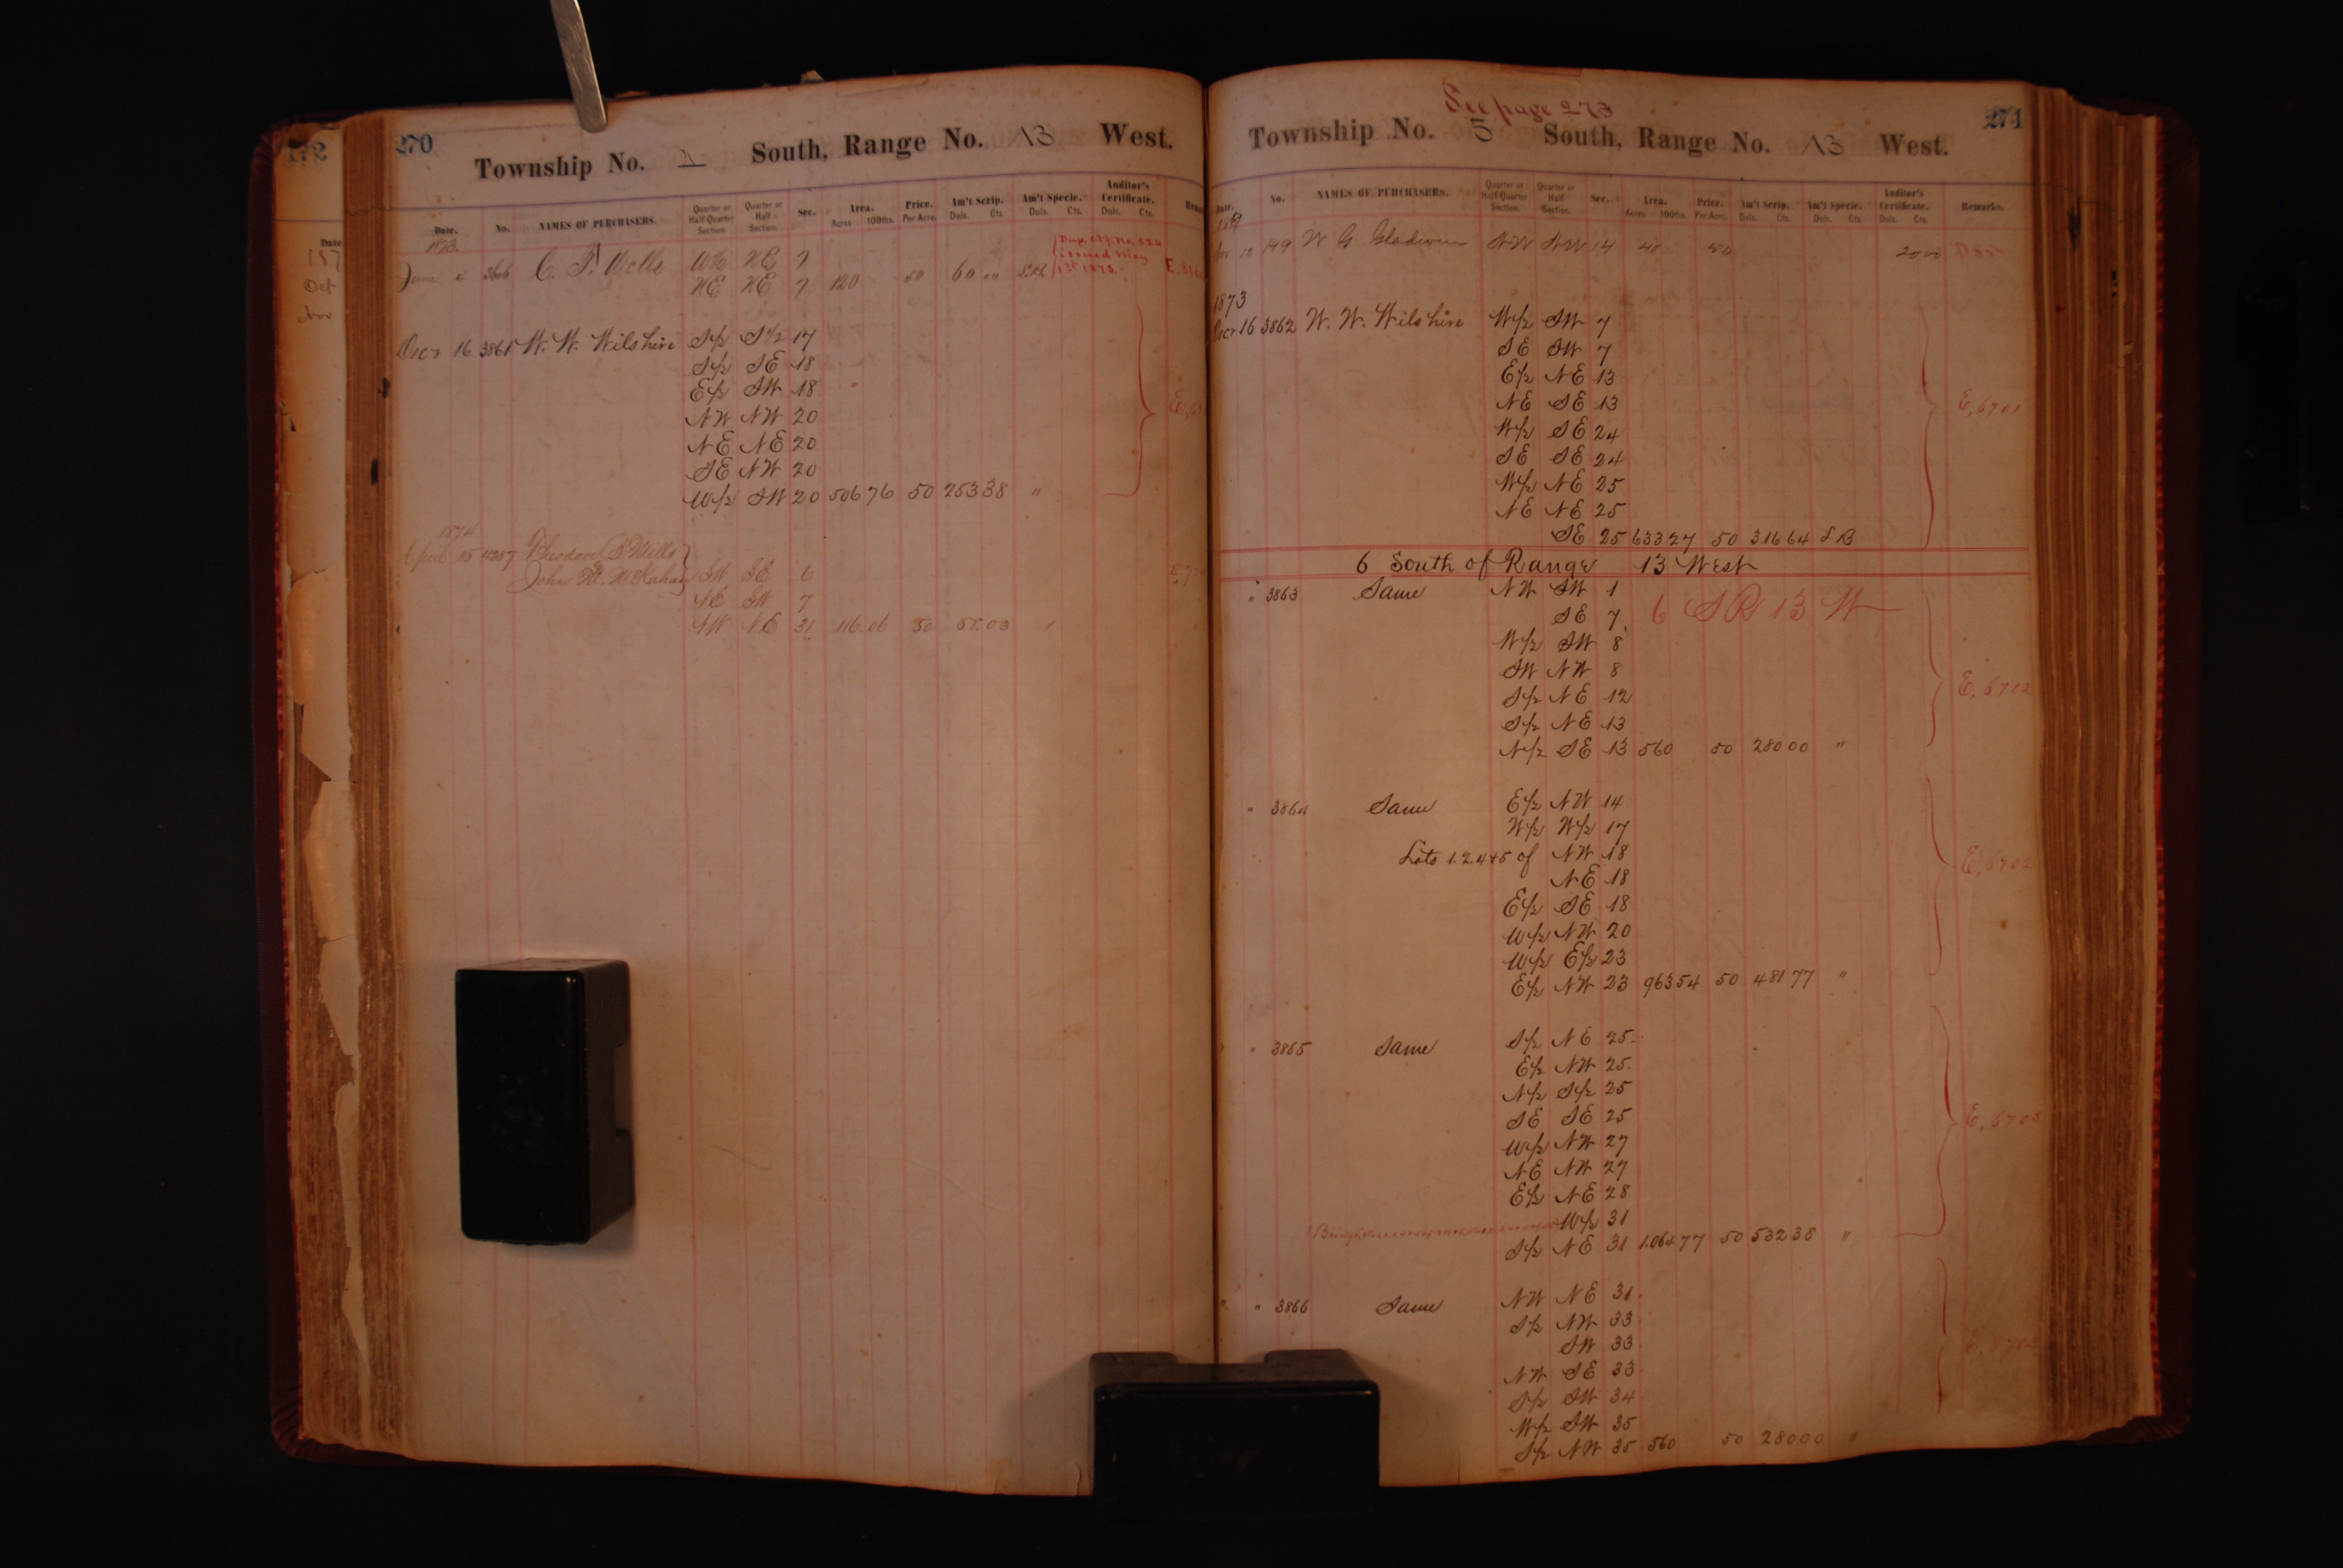 172
Date
187
Oct
Nov
270
Township No. 1 South, Range No. 13 West.
Date. No. NAMES OF PURCHASERS. Quarter or Half Quarter Section. Quarter or Half Section. Sec. Area. Acres 100ths. Price. Per Acre. Am't Scrip. Dols. Cts. Am't Specie. Dols. Cts. Auditor's Certificate. Dols. Cts.
1873
June 4 C. P. Wells W½ NE 7
NE NE 7 120 50 60 00
issued May
1st 1873.
Decr 16 3861 W. W. Wilshire S½ S½ 17
S½ SE 18
E½ SW 18
NW NW 20
NE NE 20
SE NW 20
W½ SW 20 506 76 50 253 38 "
1874
April 15 4257 Theodore B. Mills
John M. McKahan SW SE 6
NE SW 7
NE 31 116.06 50 58.03 "
See page 273
271
Township No. 5 South, Range No. 13 West.
Date. No. NAMES OF PURCHASERS. Quarter or Half Quarter Section. Quarter or Half Section. Sec. Area. Acres 100ths. Price. Per Acre. Am't Scrip. Dols. Cts. Am't Specie. Dols. Cts. Auditor's Certificate. Dols. Cts. Remarks.
10 149 W G Gladwin NW NW 14 40 50 20 00
1873
Decr 16 3862 W. W. Wilshire W½ SW 7
SE SW 7
E½ NE 13
NE SE 13 E, 6701
W½ SE 24
SE SE 24
W½ NE 25
NE NE 25
SE 25 633 27 50 316 64 S B
6 South of Range 13 West
" 3863 Same NW SW 1
SE 7 6 S R 13 W
W½ SW 8
SW NW 8
S½ NE 12 E, 6702
S½ NE 13
N½ SE 13 560 50 280 00 "
" 3864 Same E½ NW 14
W½ W½ 17
Lots 1.2.4+5 of NW 18 E, 6702
NE 18
E½ SE 18
W½ NW 20
W½ E½ 23
E½ NW 23 963 54 50 481 77 "
" 3865 Same S½ NE 25
E½ NW 25
N½ S½ 25
SE SE 25
W½ NW 27
NE NW 27
E½ NE 28
W½ 31
S½ NE 31 1.064 77 50 532 38 "
" " 3866 Same NW NE 31
S½ NW 33
SW 33
NW SE 33
S½ SW 34
W½ SW 35
S½ NW 35 560 50 280 00 "